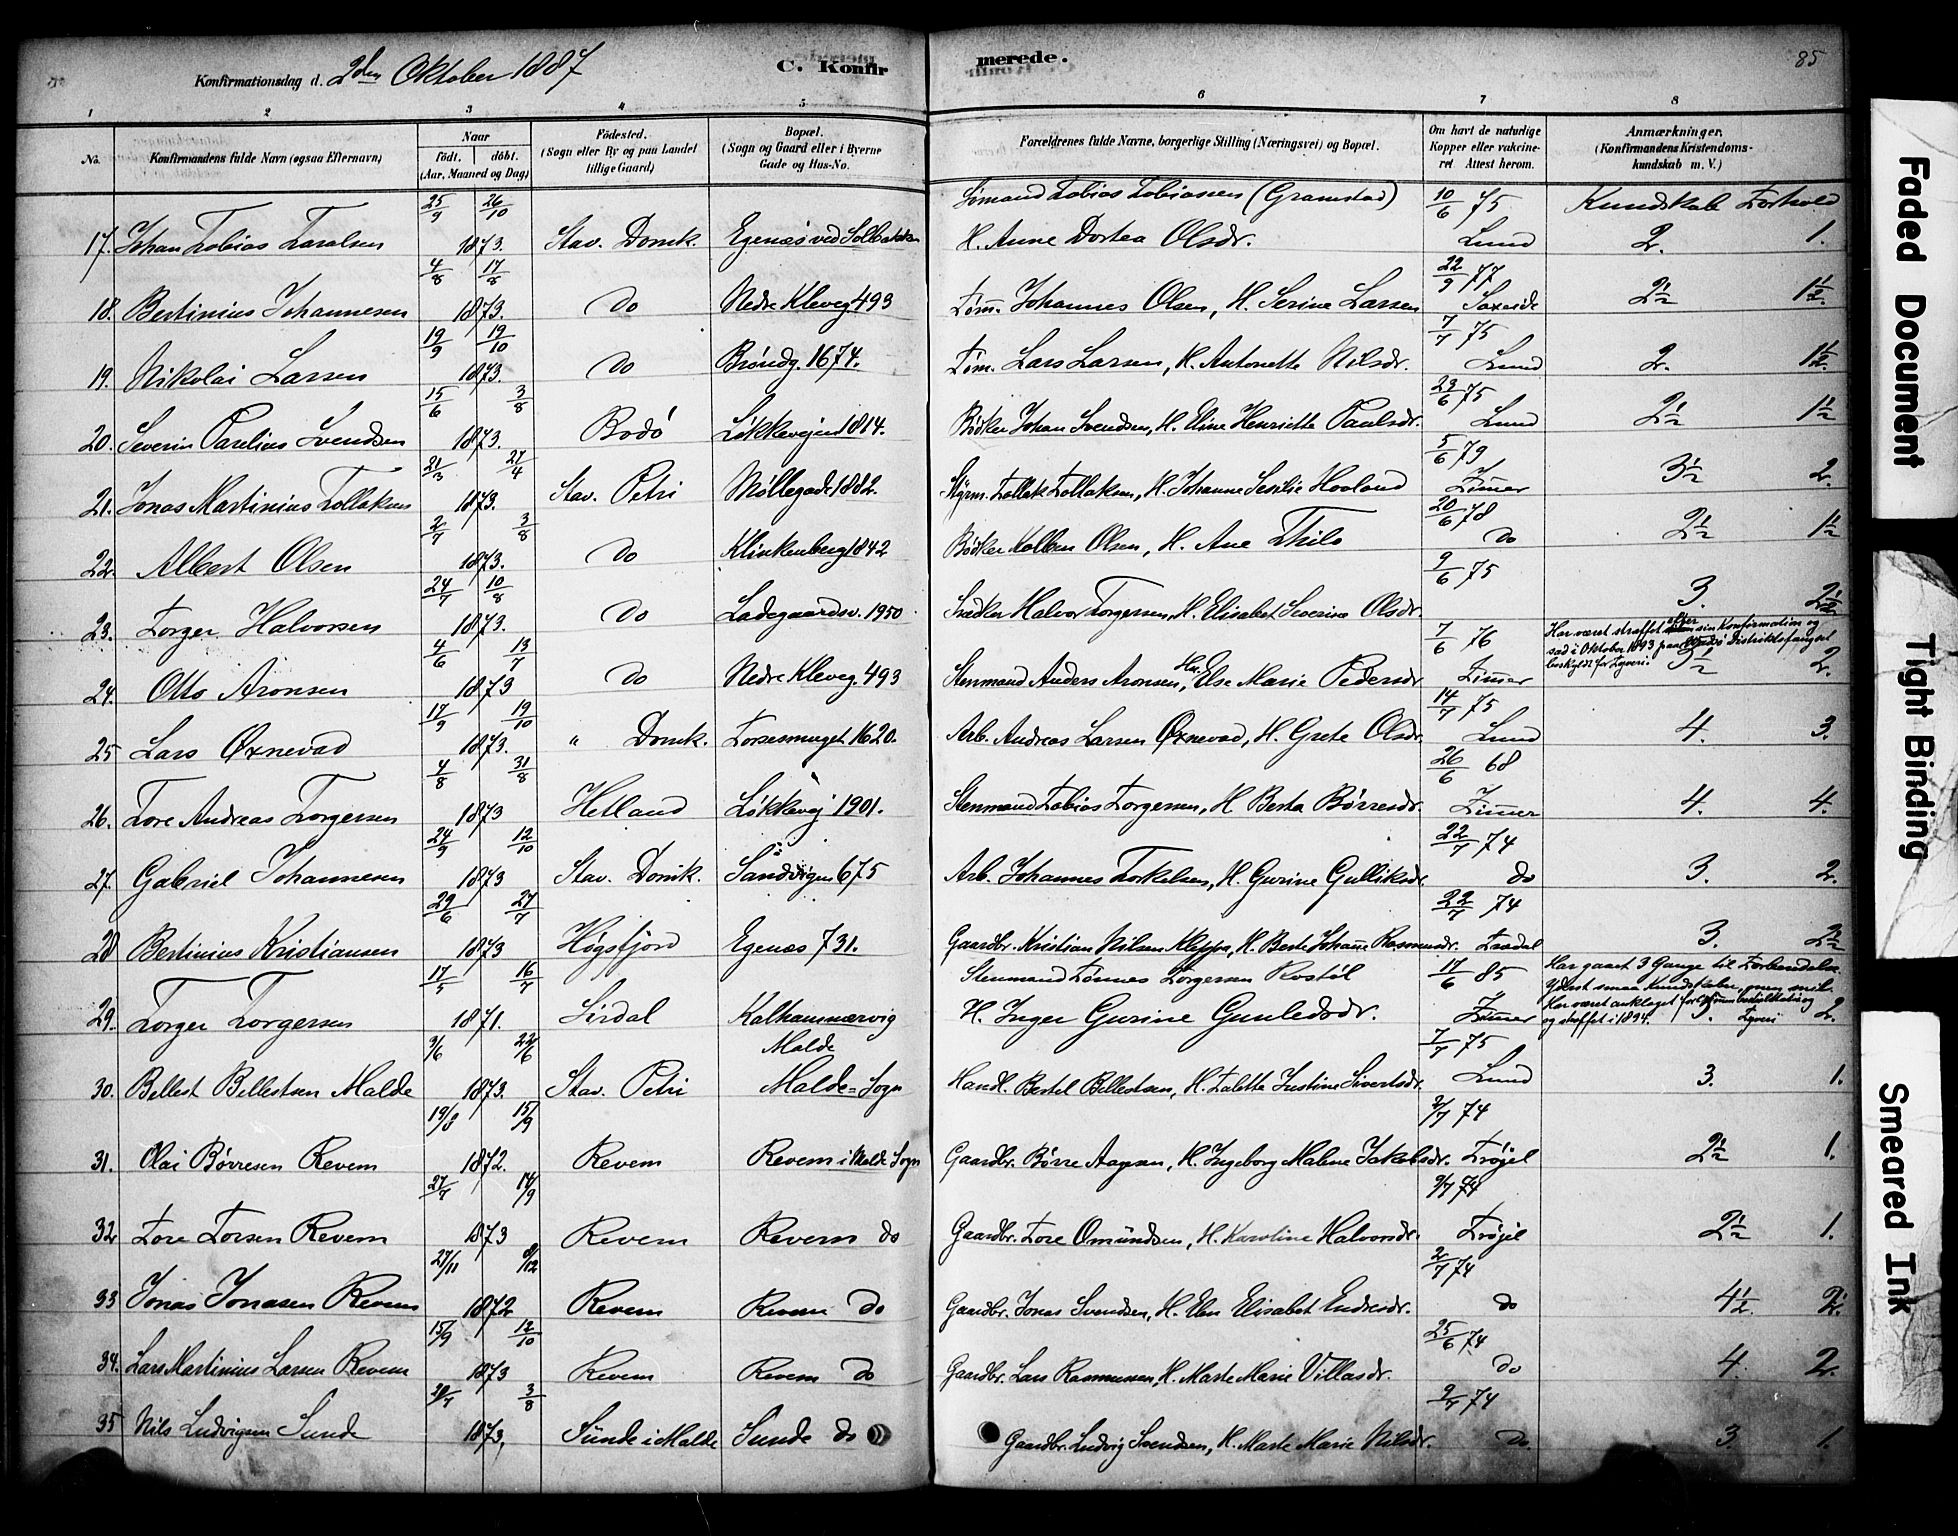 Konfirmationsdag d. 2den Oktober 1887 C. Konfirmerede. 85
1 2 3 4 5 6 7 8
No. Konfirmandens fulde Navn (ogsaa Efternavn) Naar født. døbt. (Aar, Maaned og Dag) Fødested. (Sogn eller By og paa Landet tillige Gaard) Bopæl. (Sogn og Gaard eller i Byerne Gade og Hus-No. Forældrenes fulde Navne, borgerlige Stilling (Næringsvei) og Bopæl. Om havt de naturlige Kopper eller vakcineret Attest herom. Anmærkninger. (Konfirmandens Kristendomskundskab m. V.)
25/9 26/10 Sømand Tobias Tobiassen (Gramstad) 10/6 75 Kundskab Forhold
17. Johan Tobias 1873. Stav. Domk. Egenæs ved Solbakken H. Anne Dortea Olsdr. Lund 2. 1.
4/8 17/8 22/9 77
18. Bertinius Johannesen 1873. Do Nedre Kleveg. 493 Tøm. Johannes Olsen, H. Serine Larsen 2½ 1½.
19/9 19/10 7/7 75
19. Nikolai Larsen 1873. Do Brøndg. 1674. Tøm. Lars Larsen, H. Antonette Nilsdr. Lund 2. 1½.
15/6 3/8 23/6 75
20. Severin Parelius Svendsen 1873. Bodø Løkkevejen 1814. Bødker Johan Svendsen, H. Eline Henriette Paulsdr. Lund 2½ 1½
21/3 27/4 5/6 79
21. Jonas Martinius Tollaksen 1873. Stav. Petri Møllegade 1882. Styrm. Tollak Tollaksen, H. Johanne Sesilie Hovland Zimer 3½ 2.
2/7 3/8 20/6 78
22. Albert Olsen 1873. Do Klinkenberg 1842 Bødker Kolben Olsen, H. Ane Thilo Do 2½ 1½
24/7 10/8 9/6 75
23. Torger Halvorsen 1873. Do Ladegaardsv. 1950. Halvor Torgersen, H. Elisabet Severine Olsdr. 3. 2½
4/6 13/7 7/6 76 Har været straffet efter sin Konfirmation og sad i Oktober 1893 paa Distriktsfængsel beskyldt for Tyveri.
24. Otto Aronsen 1873 Do Nedre Kleveg. 493 Stenmand Anders Aronsen, Hu. Else Marie Pedersdr Zimer 3½ 2.
17/9 19/10 14/7 75
25 Lars Øxnevad 1873. " Domk. 1620. Arb. Andreas Larsen Øxnevad, H. Grete Olsdr. Lund 4. 3.
4/8 31/8 26/6 68
26. Tore Andreas Torgersen 1873 Hetland Løkkevej 1901. Stenmand Tobias Torgersen, H. Berta Børresdr. Zimer 4. 4.
24/9 12/10 22/7 74
27. Gabriel Johannesen 1873 Stav. Domk. Sandvigen 675 Arb. Johannes Torkelsen, H. Gurine Gulliksdr. do 3. 2.
29/6 27/7 22/7 74
28 Bertinius Kristiansen 1873 Høgsfjord Egenæs 731. Gaardbr. Kristian Nilsen Kleppa, H. Berte Johanne Rasmusdr. 3. 2½
17/5 16/7 Stenmand Tønnes Torgersen Rostøl 17/6 85 Har gaaet 3 Gange til Forberedelse.
29. Torger Torgersen 1871. Sirdal Kalhammervig H. Inger Gurine Gunledsdr. Zimer Yderst smaa Kundskaber, men snil. Har været anklaget for og straffet i 1894. Tyveri 3. 2.
9/6 22/6 Malde 7/7 75
30. Bellest Bellestsen Malde 1873. Stav. Petri Malde=Sogn Handl. Bertel Bellestsen, H. Tabette Justine Sivertsdr. Lund 3. 1.
19/8 15/9 2/7 74
31. Olai Børresen Revem 1872. Revem Revem i Malde Sogn Gaardbr. Børre Aagesen, H. Ingeborg Malene Jakobsdr. Trøjel 2½ 1.
27/7 14/9 9/7 74
32 Tore Torsen Revem 1873 Revem Revem do Gaardbr. Tore Omundsen, H. Karoline Halvorsdr. Trøjel 2½ 1.
27/11 8/12 2/7 74
33 Jonas Jonasen Revem 1872 Revem Revem Do Gaardbr. Jonas Svendsen, H. Elen Elisabet Endresdr. do 4½. 2½.
15/9 12/10 25/6 74
34. Lars Martinius Larsen Revem 1873 Revem Revem do Gaardbr. Lars Rasmussen, H. Marte Marie Villasdr. do 4. 2.
3/8 2/7 74
35 Nils Ludvigsen Sunde 1873, Sunde i Malde Sunde do Gaardbr. Ludvig Svendsen, H. Marte Marie Nilsdr. Do 3. 1.
Faded Document
Tight Binding
Smeared Ink